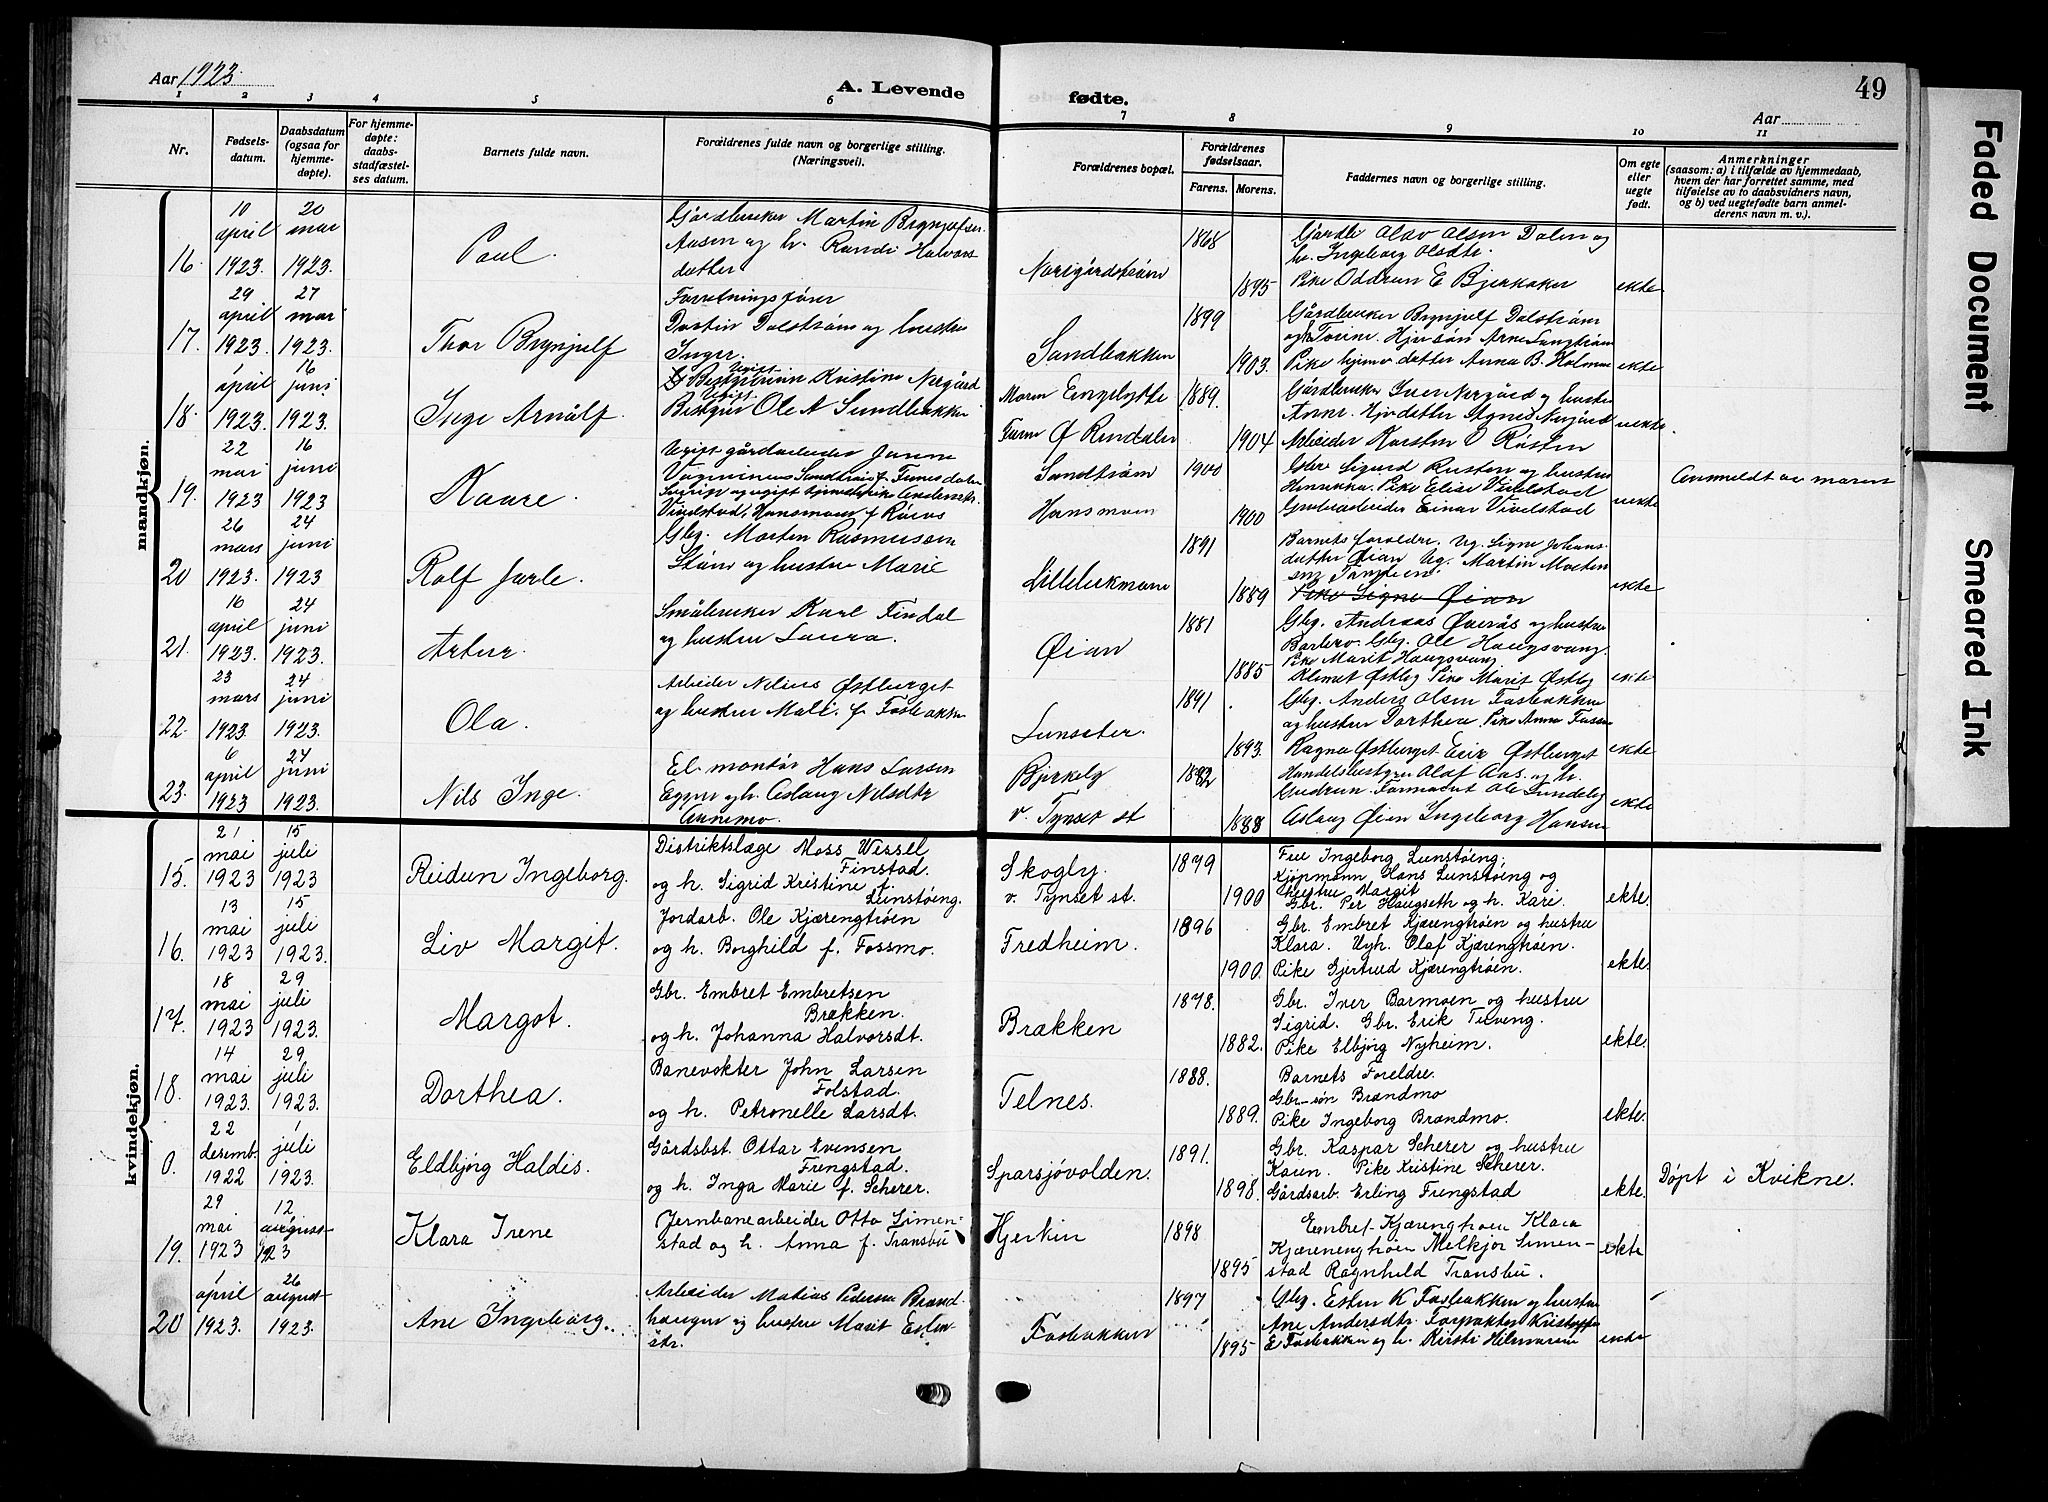 Aar 1923.
A. Levende fødte.
49
Aar
Faded Document
Smeared Ink
1 2 3 4 5 6 7 8 9 10 11
Nr.
Fødsels-
datum.
Daabsdatum
(ogsaa for
hjemme-
døpte).
For hjemme-
døpte:
daabs-
stadfæstel-
ses datum.
Barnets fulde navn.
Forældrenes fulde navn og borgerlige stilling.
(Næringsvei).
Forældrenes bopæl.
Forældrenes
fødselsaar.
Farens. Morens.
Faddernes navn og borgerlige stilling.
Om egte
eller
uegte
født.
Anmerkninger
(saasom: a) i tilfælde av hjemmedaab,
hvem der har forrettet samme, med
tilføielse av to daabsvidners navn,
og b) ved uegtefødte barn anmel-
derens navn m. v.).
mandkjøn.
16.
10 april 1923.
20 mai 1923.
Paul.
Gårdbruker Martin Brynjulfsen
Aasen og h. Randi Halvors
datter
1868
1895
Gårdbr Olav Olsen Dalen og
h. Ingeborg Olsdtr.
Pike Oddrun E Bjerkaker
ekte.
17.
29 april 1923.
27 mai 1923.
Thor Brynjulf
Forretningsfører
Dalstrøm og hustru
Inger.
Sandbakken
1899
1903.
Gårdbruker Brynjulf Dalstrøm
Pike hjemv datter Anna B. Holmen
ekte.
18.
1 april 1923.
16 juni 1923.
Inge Arnålf.
Ugift
Bestyrerinn Kristine Nergård
Ugift
Bestyrer Ole A Sundbakken
Moren Engelykke
Faren Ø Rendalen
1889.
1904
Gårdbruker Iver Nergård og hustru
Anne. Hjdatter Agnes Nergård
Arbeider Karsten O Røsten
uekte.
19.
22 mai 1923
16 juni 1923
Kaare.
Ugift gårdarbeider
Sandtrøm
Hansmoen
1900
1900
Gbr Sigurd Rusten og hustru
Pike Elise Vivelstad
Grubearbeider Einar Vivelstad
uekte
Anmeldt av moren
20
26 mars 1923.
24 juni 1923
Rolf Jarle.
Gbg. Morten Rasmussen
Støen og hustru Marie
Lillebekmoen
1891
1889
Barnets foreldre. Ug. Signe Johans-
datter Øian Ug. Martin
Pike Signe Øian
ekte
21.
16 april 1923.
24 juni 1923.
Artur.
Småbruker Karl Findal
og hustru Laura.
Øian
1881
1885
Gbg. Andreas Øverås og hustru
Barbro. Gbg. Ole Haugsvang.
Pike Marit Haugsvang
ekte
22.
23 mars 1923.
24 juni 1923.
Ola.
Arbeider Nilius Østburget
og hustru Mali f. Fosbakken
Lunseter.
1891
1893.
Klemet Østby Pike Marit Østby
Gbg. Anders Olsen Fosbakken
og hustru Dorthea. Pike Anne
Ragna Østburget Erik Østburget
ekte
23.
6 april 1923
24 juni 1923.
Nils Inge.
El. montør Hans Larsen
Egnen og h. Aslaug Nilsdtr
Annemo.
Bjerkely
v. Tynset st
1882
1888
Handelsbestyrer Olaf Aas og h.
Gudrun. Ole Lundeby
Aslaug Øian Ingeborg Hansen
ekte
kvindekjøn.
15.
21 mai 1923
15 juli 1923
Reidun Ingeborg.
Distriktslæge Moss Wessel
Finstad.
og h. Sigrid Kristine f.
Lunstøeng.
Skogly.
v. Tynset st.
1879
1900
Fru Ingeborg Lunstøeng,
Kjøpmann Hans Lunstøeng og
hustru Margit
Gbr. Per Haugseth og h. Kari.
ekte.
16.
13 mai 1923
15 juli 1923.
Liv Margit.
Jordarb. Ole Kjærengtrøen
og h. Borghild f. Fossmo.
Fredheim.
1896
1900.
Gbr. Embret Kjærengtrøen og hustru
Klara. Ugh. Olaf Kjærengtrøen.
Pike Gjertrud Kjærengtrøen.
ekte.
17.
18 mai 1923
29 juli 1923.
Margot.
Gbr. Embret Embretsen
Brækken.
og h. Johanna Halvorsdt.
Brækken
1878.
1882.
Gbr. Iver Barmoen og hustru
Sigrid. Gbr. Erik Tuveng.
Pike Elbjørg Nyheim.
ekte.
18.
14 mai 1923.
29 juli 1923.
Dorthea.
Banevokter John Larsen
Folstad.
og h. Petronelle Larsdt.
Telnes.
1888.
1889.
Barnets Foreldre.
Gbr-søn Brændmo
Pike Ingeborg Brændmo.
ekte.
0.
22 desemb. 1922
1 juli 1923.
Eldbjørg Haldis.
Gårdsbst. Ottar Evensen
Frengstad.
og h. Inga Marie f. Scherer.
Sparsjøvolden.
1891.
1898.
Gbr. Kaspar Scherer og hustru
Karen. Pike Kristine Scherer.
Gårdsarb. Erling Frengstad
ekte.
Døpt i Kvikne.
19.
29 mai 1923
12 august 1923
Klara Irene
Jernbanearbeider Otto Simen-
stad og h. Anna f. Transbu
Hjerkin
1898
1895
Embret Kjærengtroen Klara
Kjærenengtroen Melkjor Simen-
stad Ragnhild Transbu.
ekte
20
1 april 1923.
26 august 1923.
Ane Ingeborg.
Arbeider Matias Pedersen Brænd-
haugen og hustru Marit Esten
dtr.
Fosbakken
1897
1895
Gbg. Esten K Fosbakken og hustru
Ane Andersdtr. Forpakter Kristoffer
E Fosbakken og h. Kirsti Hilmarsen
ekte